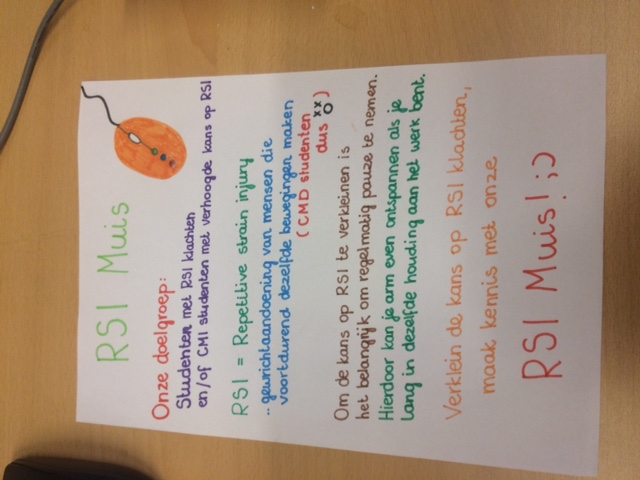 RSI Muis
Onze doelgroep:
Studenten met RSI klachten
en/of CMI studenten met verhoogde kans op RSI
RSI = Repetitive strain injury
.. gewrichtaandoening van mensen die
voortdurend dezelfde bewegingen maken
(CMD studenten
dus xx o)
Om de kans op RSI te verkleinen is
het belangrijk om regelmatig pauze te nemen.
Hierdoor kan je arm even ontspannen als je
lang in dezelfde houding aan het werk bent.
Verklein de kans op RSI klachten,
maak kennis met onze
RSI Muis! ;)